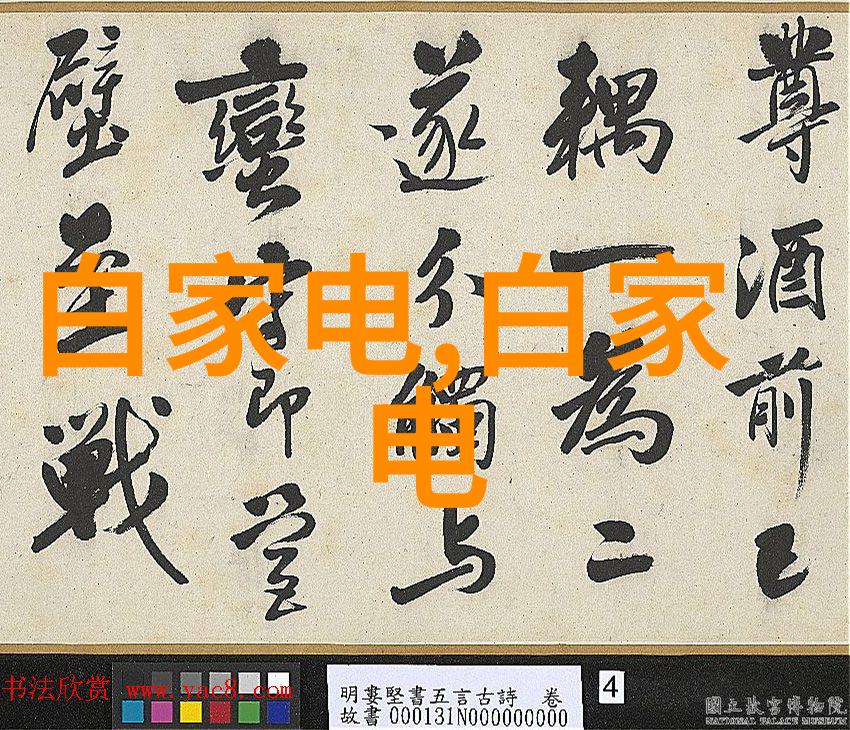 尊酒前已
耦一為二
遂分觸与
蠻即
壁戰
白家电,白家
电
书法欣赏 www.yac8.com
明婁堅書五言古詩 卷
故書000131N000000000
4
國立故宮博物院
NATIONAL PALACE MUSEUM